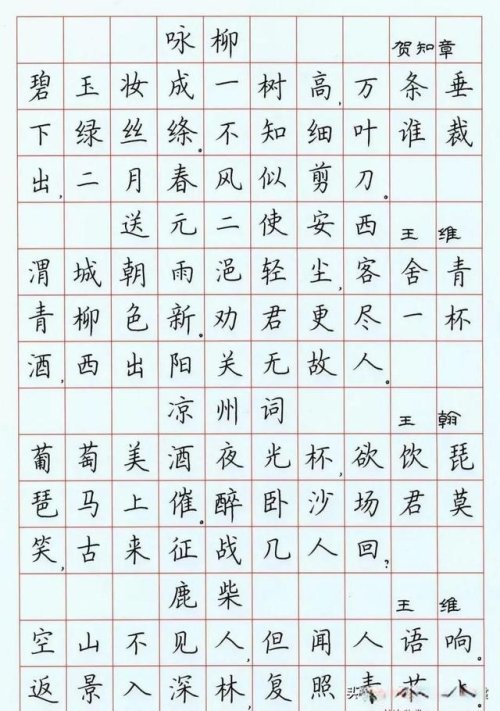 咏柳 贺知章
碧玉妆成一树高,万条垂
下绿丝绦。不知细叶谁裁
出,二月春风似剪刀。
送元二使安西 王维
渭城朝雨浥轻尘,客舍青
青柳色新。劝君更尽一杯
酒,西出阳关无故人。
凉州词 王翰
葡萄美酒夜光杯,欲饮琵
琶马上催。醉卧沙场君莫
笑,古来征战几人回?
鹿柴 王维
空山不见人,但闻人语响。
返景入深林,复照青苔上